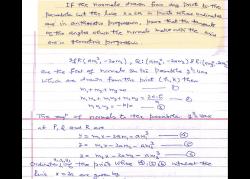 If the normals drawn from any point to the
parabola cut the line x = 2a in points whose ordinates
are in arithmetic progression, prove that the tangents
of the angles which the normals make with the axis
are in geometric progression.
If P(am₁², -2am₁), Q(am₂², -2am₂) & R(am₃², -2am₃)
are the feet of normals on the parabola y² = 4ax
which are drawn from the point (h, k) then
m₁ + m₂ + m₃ = 0
The eqⁿ of normals to the parabola y² = 4ax
at P, Q and R are
y = m₁x - 2am₁ - am₁³
y = m₂x - 2am₂ - am₂³
y = m₃x - 2am₃ - am₃³
Ordinates of the point where
line x = 2a are given by